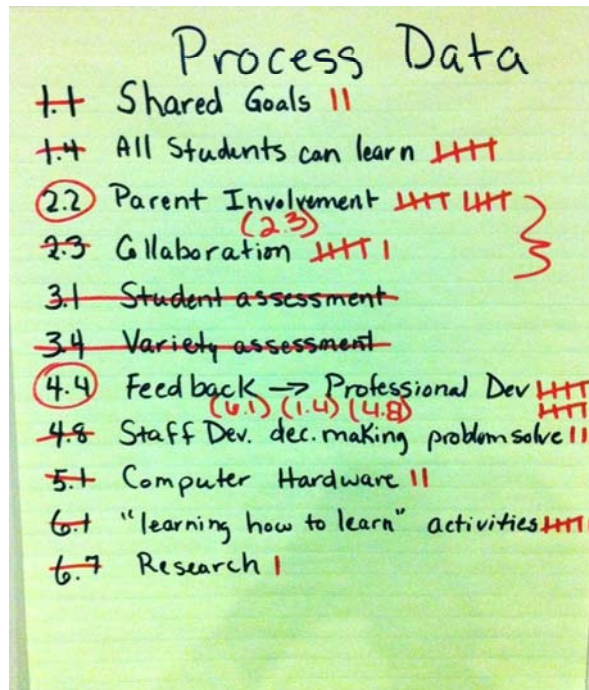 Process Data
1.1 Shared Goals
1.4 All Students can learn
2.2 Parent Involvement
(2.3)
2.3 Collaboration
3.1 Student assessment
3.4 Variety assessment
4.4 Feedback → Professional Dev
(6.1) (1.4) (4.8)
4.8 Staff Dev. dec. making problem solve
5.1 Computer Hardware
6.1 "learning how to learn" activities
6.7 Research